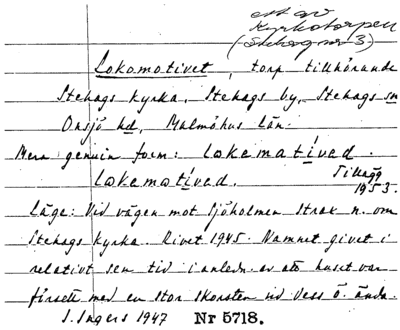 ett av
Kyrkotorpen
(Stehag nr 3.)
Lokomotivet, torp tillhörande
Stehags kyrka, Stehags by, Stehags sn
Onsjö hd, Malmöhus län.
Mera genuin form: lokematived.
Lokematived. Tillägg
1953.
Läge: Vid vägen mot Sjöholmen strax n. om
Stehags kyrka. Rivet 1945. Namnet givet i
relativt sen tid i anledn. av att huset var
försett med en stor skorsten vid dess ö. ända.
I. Ingers 1947 Nr 5718.